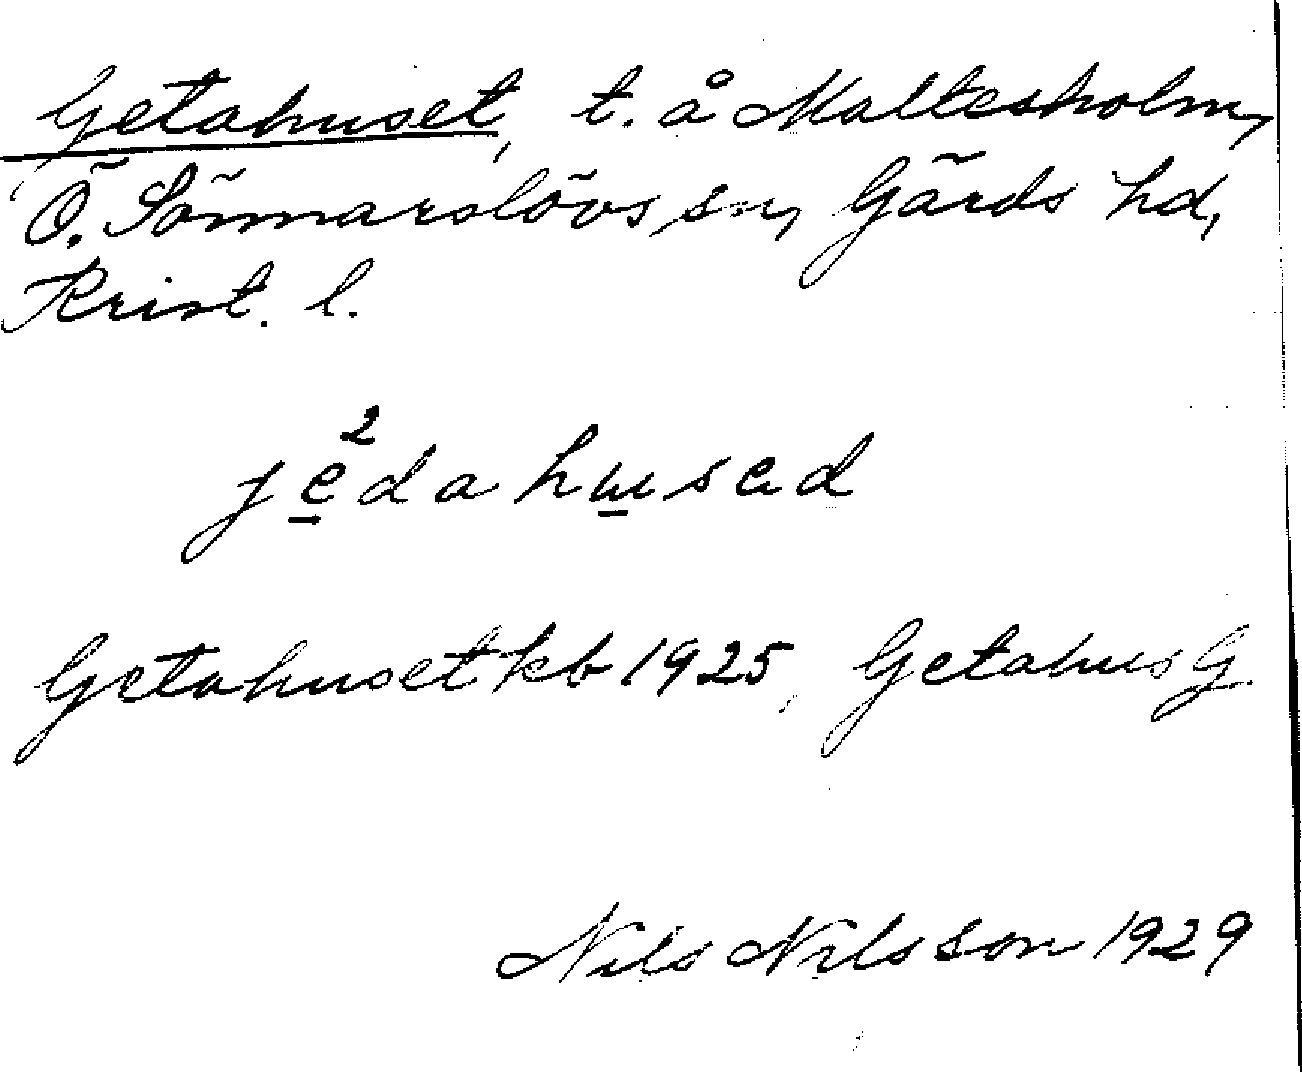 Getahuset, t. å Maltesholm,
Ö. Sönnarslövs sn, Gärds hd,
Krist. l.
2
jedahusad
Getahuset kb 1925, Getahus G.
Nils Nilsson 1929